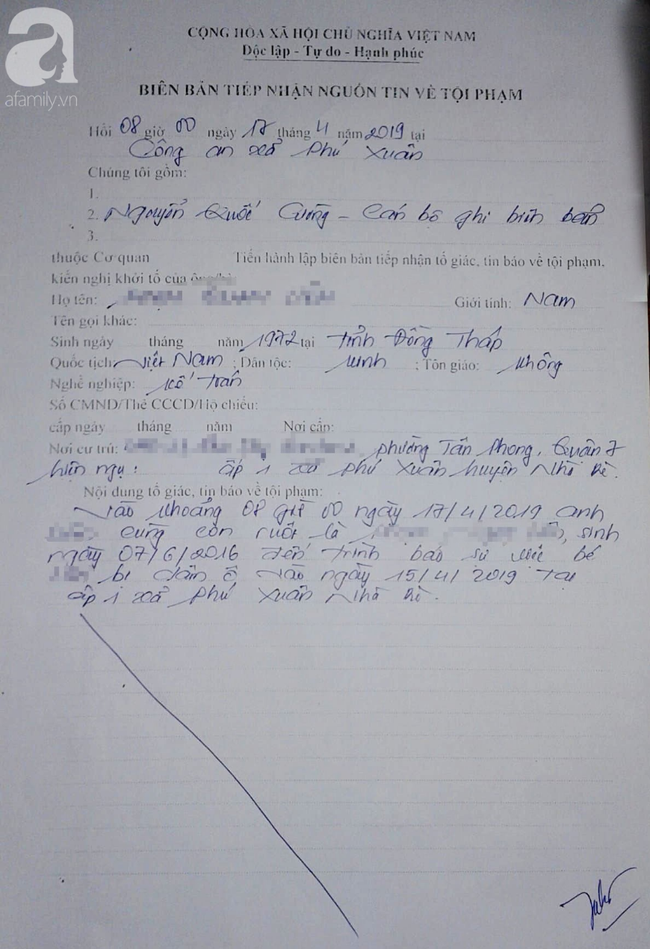 a
afamily.vn
CỘNG HÒA XÃ HỘI CHỦ NGHĨA VIỆT NAM
Độc lập - Tự do - Hạnh phúc
BIÊN BẢN TIẾP NHẬN NGUỒN TIN VỀ TỘI PHẠM
Hồi 08 giờ 00 ngày 17 tháng 4 năm 2019 tại
Công an xã Phú Xuân
Chúng tôi gồm:
1.
2. Nguyễn Quốc Cường - Cán bộ ghi biên bản
3.
thuộc Cơ quan Tiến hành lập biên bản tiếp nhận tố giác, tin báo về tội phạm,
kiến nghị khởi tố của ông/bà:
Họ tên: Giới tính: Nam
Tên gọi khác:
Sinh ngày tháng năm 1972 tại Tỉnh Đồng Tháp
Quốc tịch: Việt Nam ; Dân tộc: Kinh ; Tôn giáo: Không
Nghề nghiệp:
Số CMND/Thẻ CCCD/Hộ chiếu:
cấp ngày tháng năm Nơi cấp:
Nơi cư trú: , phường Tân Phong, Quận 7
Hiện ngụ: ấp 1 xã Phú Xuân huyện Nhà Bè.
Nội dung tố giác, tin báo về tội phạm:
Vào khoảng 08 giờ 00 ngày 17/4/2019 anh
cùng con ruột là , sinh
ngày 07/6/2016 đến trình báo sự việc bé
bị dâm ô vào ngày 15/4/2019 tại
ấp 1 xã Phú Xuân Nhà Bè.